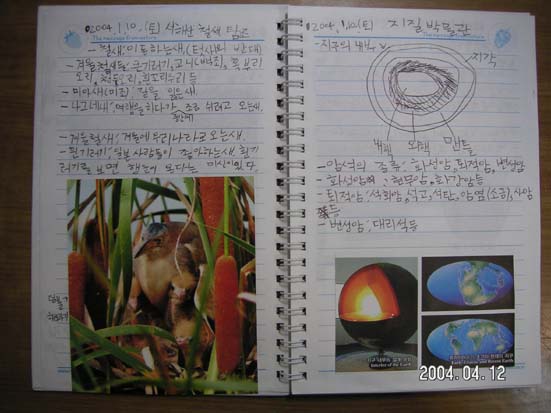 2004. 1. 10. (토) 서해안 철새 탐조
- 철새: 이동하는 새, (텃새의 반대)
- 겨울철새들: 큰기러기, 고니(백조), 흑부리
오리, 청둥오리, 흰꼬리수리 등
- 미아새(미조) 길을 잃은 새
- 나그네새,
조금 쉬려고 오는새,
- 겨울철새, 겨울에 우리나라로 오는새.
- 흰기러기, 일본 사람들이 좋아하는새, 흰기
러기를 보면 행운이 온다는 미신이 있다.
2004. 1. 10. (토) 지질 박물관
- 지구의 내부
지각
내핵 외핵 맨틀
- 암석의 종류, 화성암, 퇴적암, 변성암
- 화성암의 : 현무암, 화강암 등
퇴적암: 석회암, 석고, 석탄, 암염(소금), 사암
등
- 변성암: 대리석 등
Interior of the Earth
2004.04.12